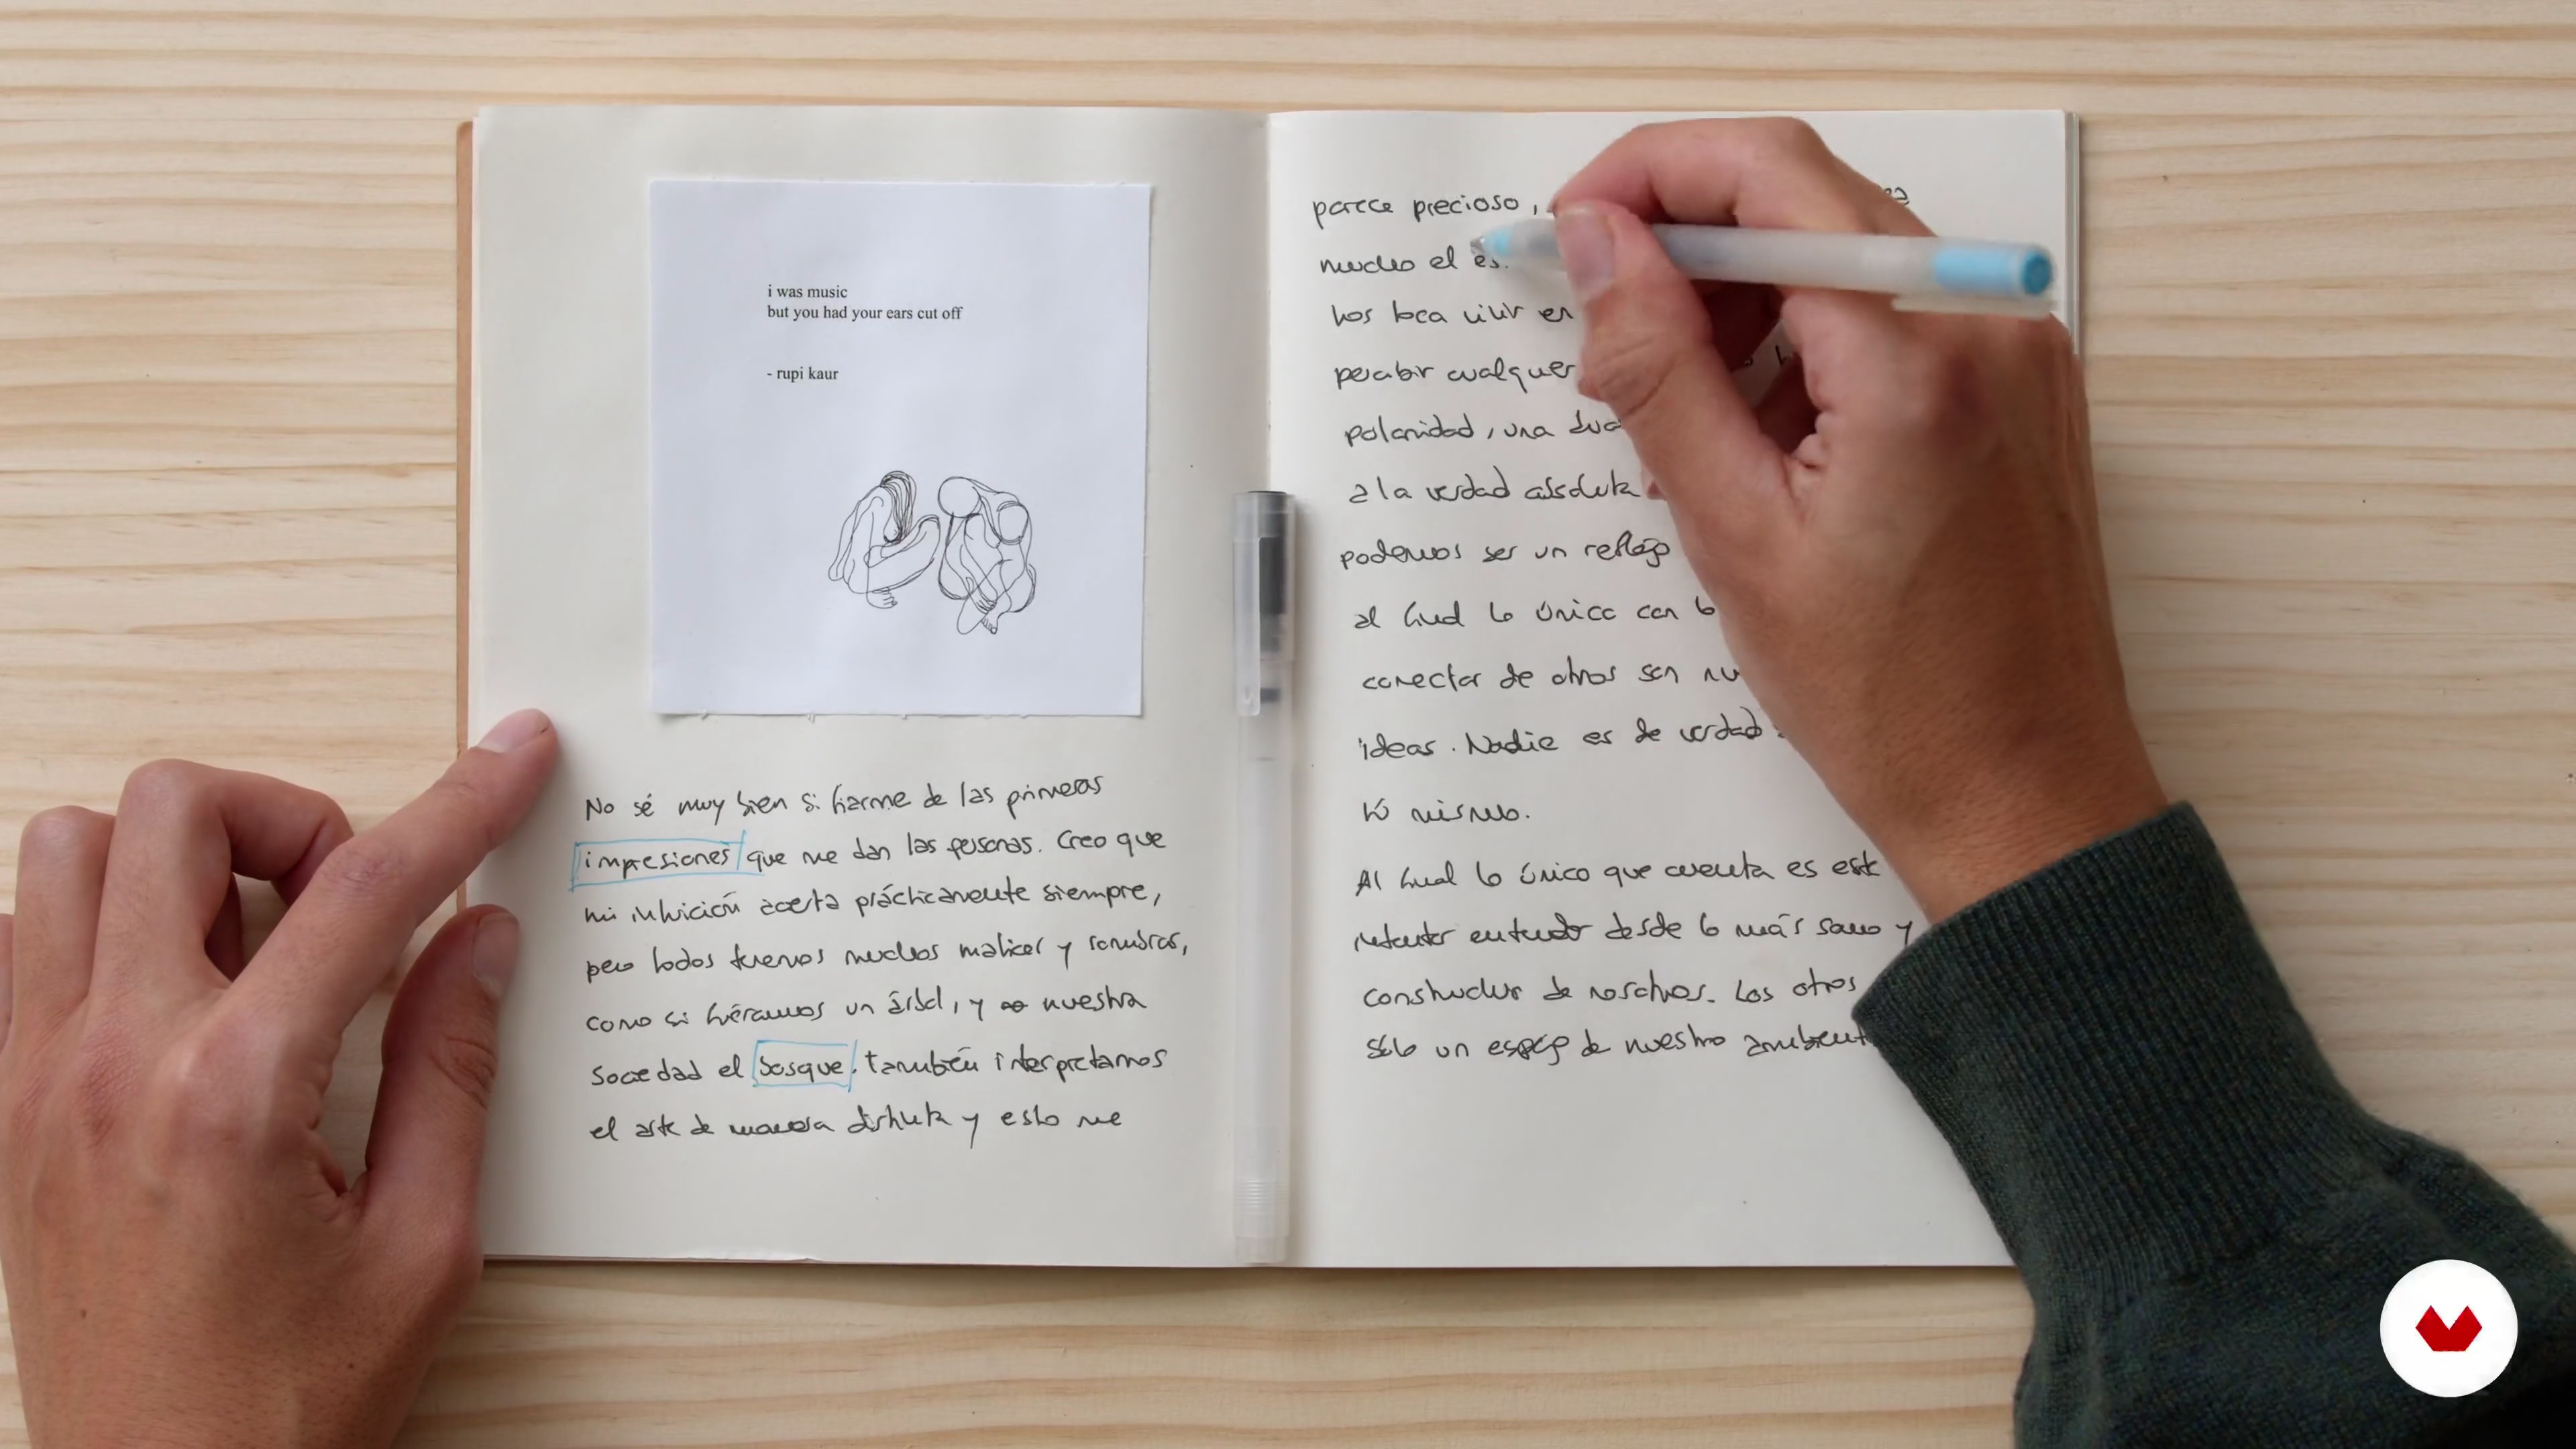 i was music
but you had your ears cut off
- rupi kaur
No sé muy bien si fiarme de las primeras
impresiones que me dan las personas. Creo que
mi intuición acerta prácticamente siempre,
pero todos tenemos muchos matices y sombras,
como si fuéramos un árbol, y nuestra
sociedad el bosque. también interpretamos
el arte de manera distinta y esto me
parece precioso,
mucho el es
nos toca vivir en
percibir cualquier
polaridad, una dua
a la verdad absoluta
podemos ser un reflejo
al final lo único con lo
conectar de otros son nu
ideas. Nadie es de verdad
lo mismo.
Al final lo único que cuenta es este
intentar entender desde lo más sano y
constructor de nosotros. Los otros
sólo un espejo de nuestro ambient